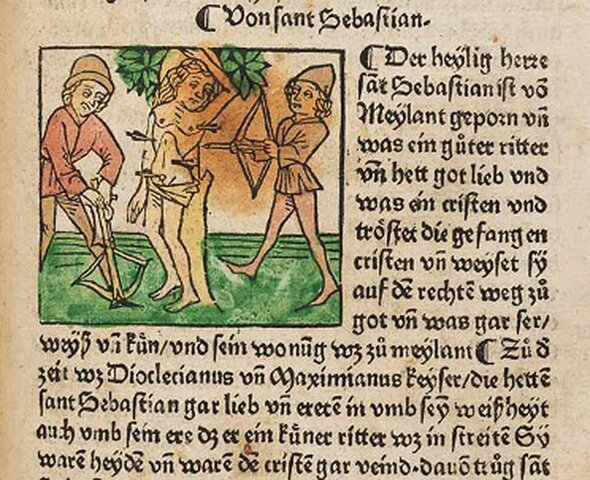 ⸿ Von sant Sebastian.
⸿ Der heylig herre
sāt Sebastian ist vō
Meylant geporn vñ
was ein gůter ritter
vñ hett got lieb vnd
was ein cristen vnd
trőstet die gefangen
cristen vñ weyset sy
auf dē rechtē weg zů
got vñ was gar ser/
weyß vñ kůn/vnd sein wonūg wz zů meylant ⸿ Zů d̄
zeit wz Dioclecianus vñ Maximianus keyser/die hettē
sant Sebastian gar lieb vñ eretē in vmb seyn weißheyt
auch vmb sein ere dz er ein kůner ritter wz in streitē Sy
warē heydē vñ warē dē cristē gar veind.dauō trůg sāt